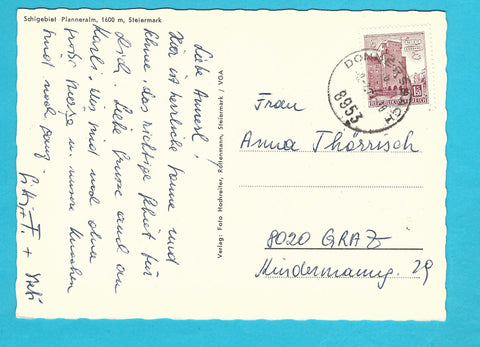 Schigebiet Planneralm, 1600 m, Steiermark
Liebe Annerl!
Hier ist herrliche Sonne und
Schnee, das richtige Gebiet für
Dich. Liebe Grüsse auch an
Karli. Wir sind noch ohne
große Sturze u. unsere Knochen
sind noch ganz.
Verlag: Foto Hochreiter, Rottenmann, Steiermark / VOA
DONNERSBACH
8953
REPUBLIK ÖSTERREICH
Frau
Anna Thorrisch
8020 GRAZ
Mindermanng. 29